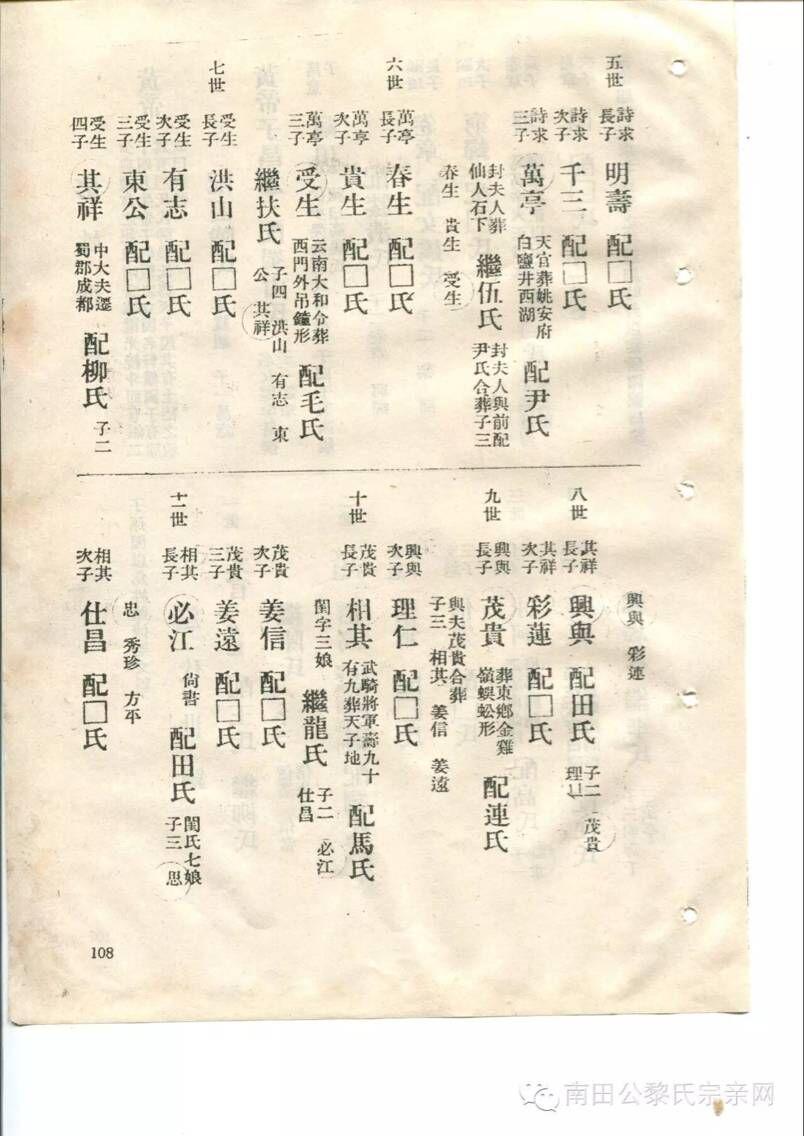 五世
詩求長子 明壽 配□氏
詩求次子 千三 配□氏
詩求三子 萬亭 天官葬姚安府白鹽井西湖 配尹氏
封夫人葬仙人石下 繼伍氏 封夫人與前配尹氏合葬子三
春生 貴生 受生
六世
萬亭長子 春生 配□氏
萬亭次子 貴生 配□氏
萬亭三子 受生 云南大和令葬西門外吊鐘形 配毛氏
繼扶氏 子四 洪山 有志 東公 其祥
七世
受生長子 洪山 配□氏
受生次子 有志 配□氏
受生三子 東公 配□氏
受生四子 其祥 中大夫遷蜀郡成都 配柳氏 子二
興與 彩連
八世
其祥長子 興與 配田氏 子二 茂貴 理仁
其祥次子 彩蓮 配□氏
九世
興與長子 茂貴 葬東鄉金雞嶺蜈蚣形 配連氏
與夫茂貴合葬子三 相其 姜信 姜遠
興與次子 理仁 配□氏
十世
茂貴長子 相其 武騎將軍壽九十有九葬天子地 配馬氏
閨字三娘 繼龍氏 子二 必江 仕昌
茂貴次子 姜信 配□氏
茂貴三子 姜遠 配□氏
十一世
相其長子 必江 尙書 配田氏 閨氏七娘子三 思
忠 秀珍 方平
相其次子 仕昌 配□氏
108
南田公黎氏宗亲网